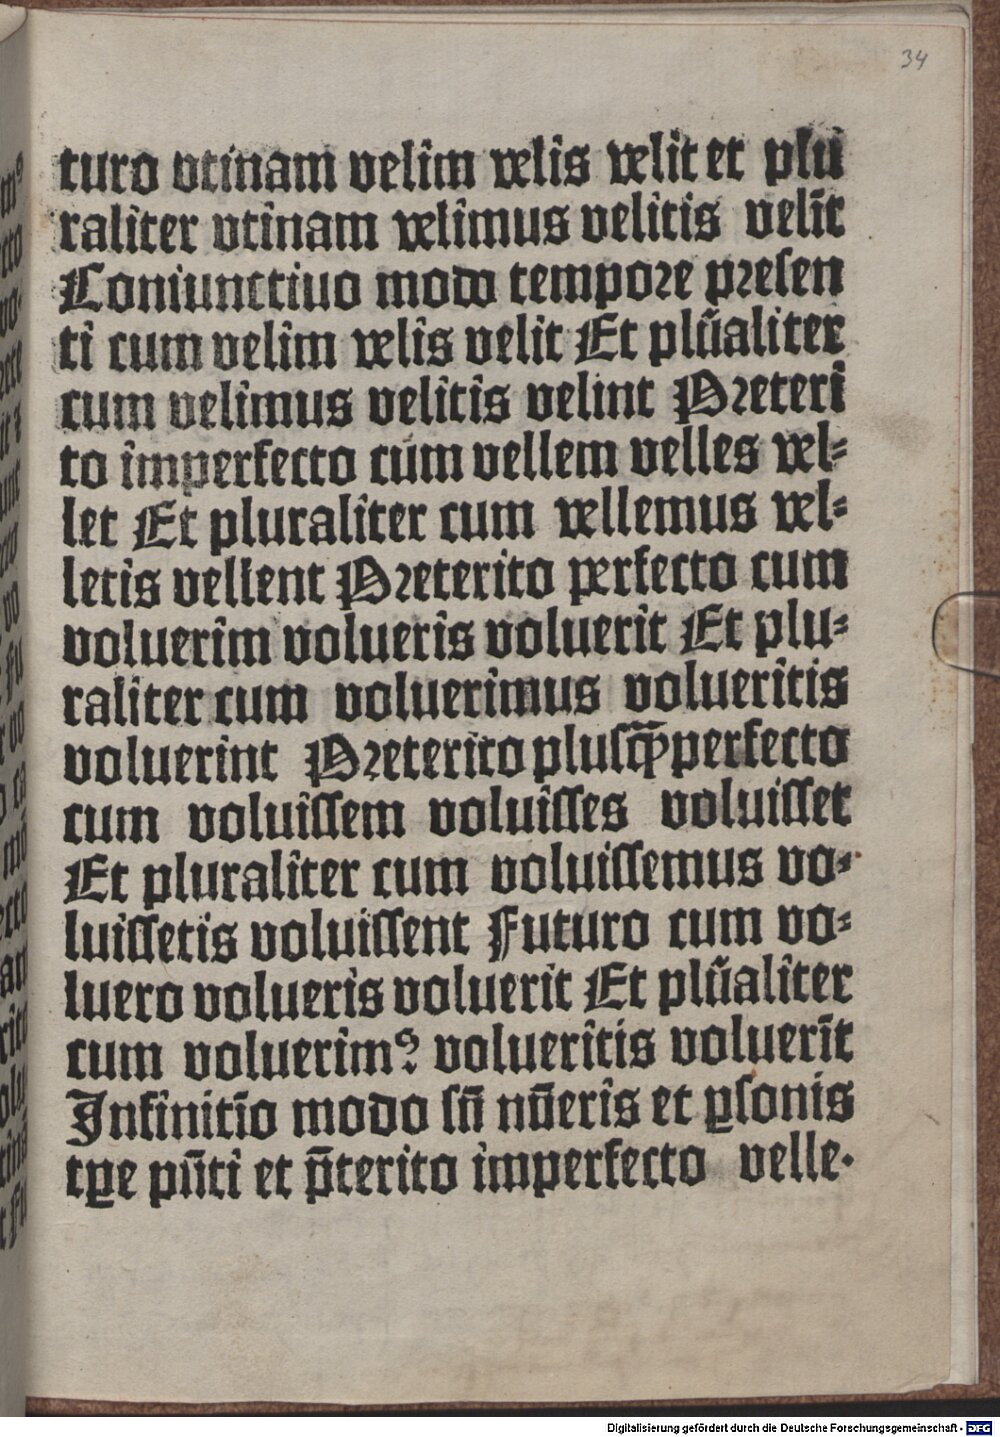 34
turo vtinam velim velis velit et plu
raliter vtinam velimus velitis velīt
Coniunctiuo modo tempore presen
ti cum velim velis velit Et plūaliter
cum velimus velitis velint Preteri
to imperfecto cum vellem velles vel-
let Et pluraliter cum vellemus vel-
letis vellent Preterito perfecto cum
voluerim volueris voluerit Et plu-
raliter cum voluerimus volueritis
voluerint Preterito plusqꝫperfecto
cum voluissem voluisses voluisset
Et pluraliter cum voluissemus vo-
luissetis voluissent Futuro cum vo-
luero volueris voluerit Et plūaliter
cum voluerimꝰ volueritis voluerīt
Infinitīo modo sn̄ nūeris et ꝑsonis
tꝑe pn̄ti et p̄terito imperfecto velle.
Digitalisierung gefördert durch die Deutsche Forschungsgemeinschaft - DFG